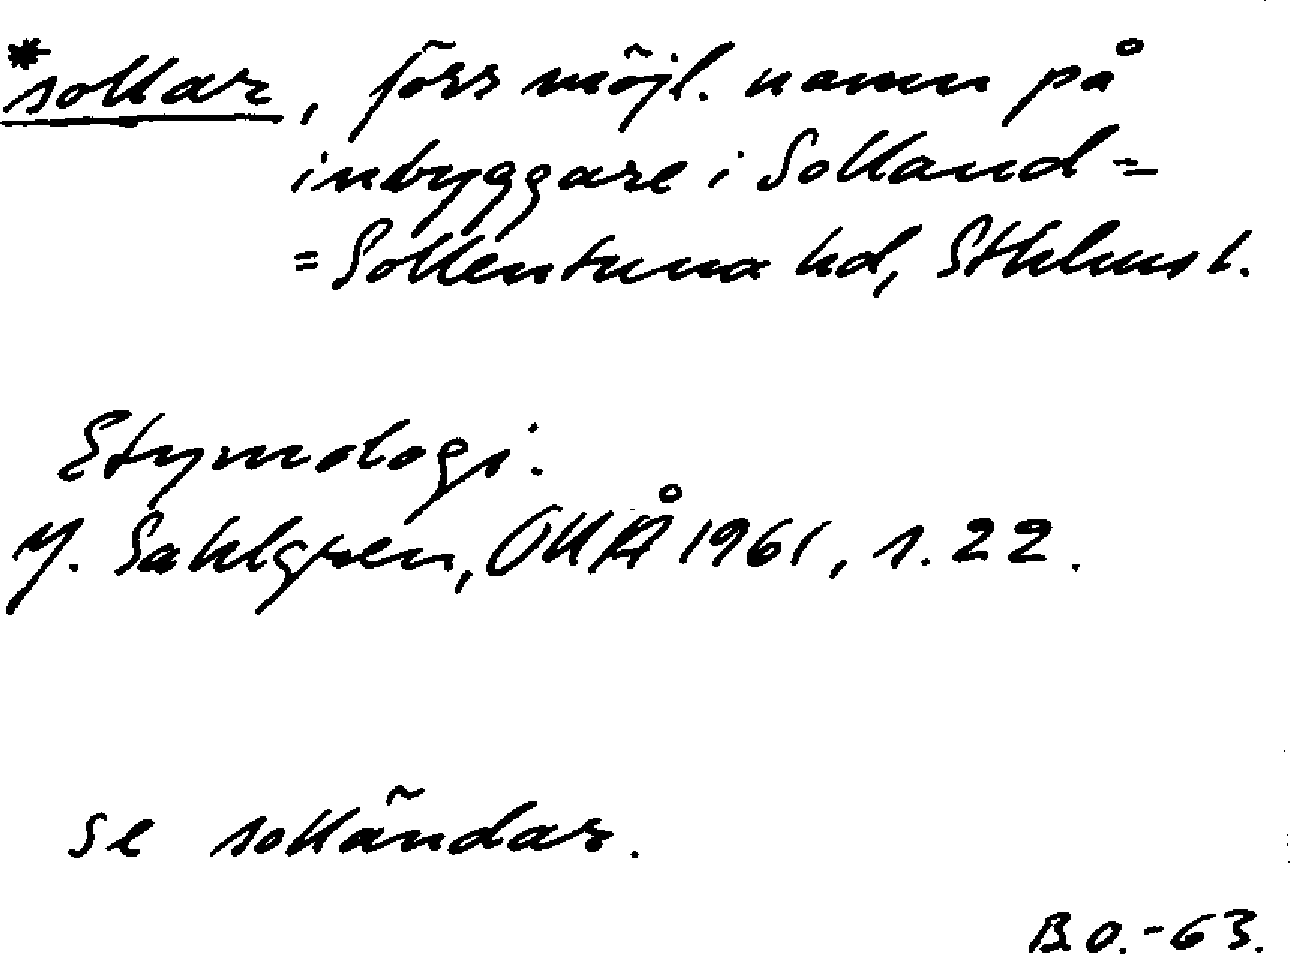 *sollar, förr möjl. namn på
inbyggare i Solland =
= Sollentuna hd, Sthlms l.
Etymologi:
J. Sahlgren, OUÅ 1961, s. 22.
se solländar.
B.O. -63.